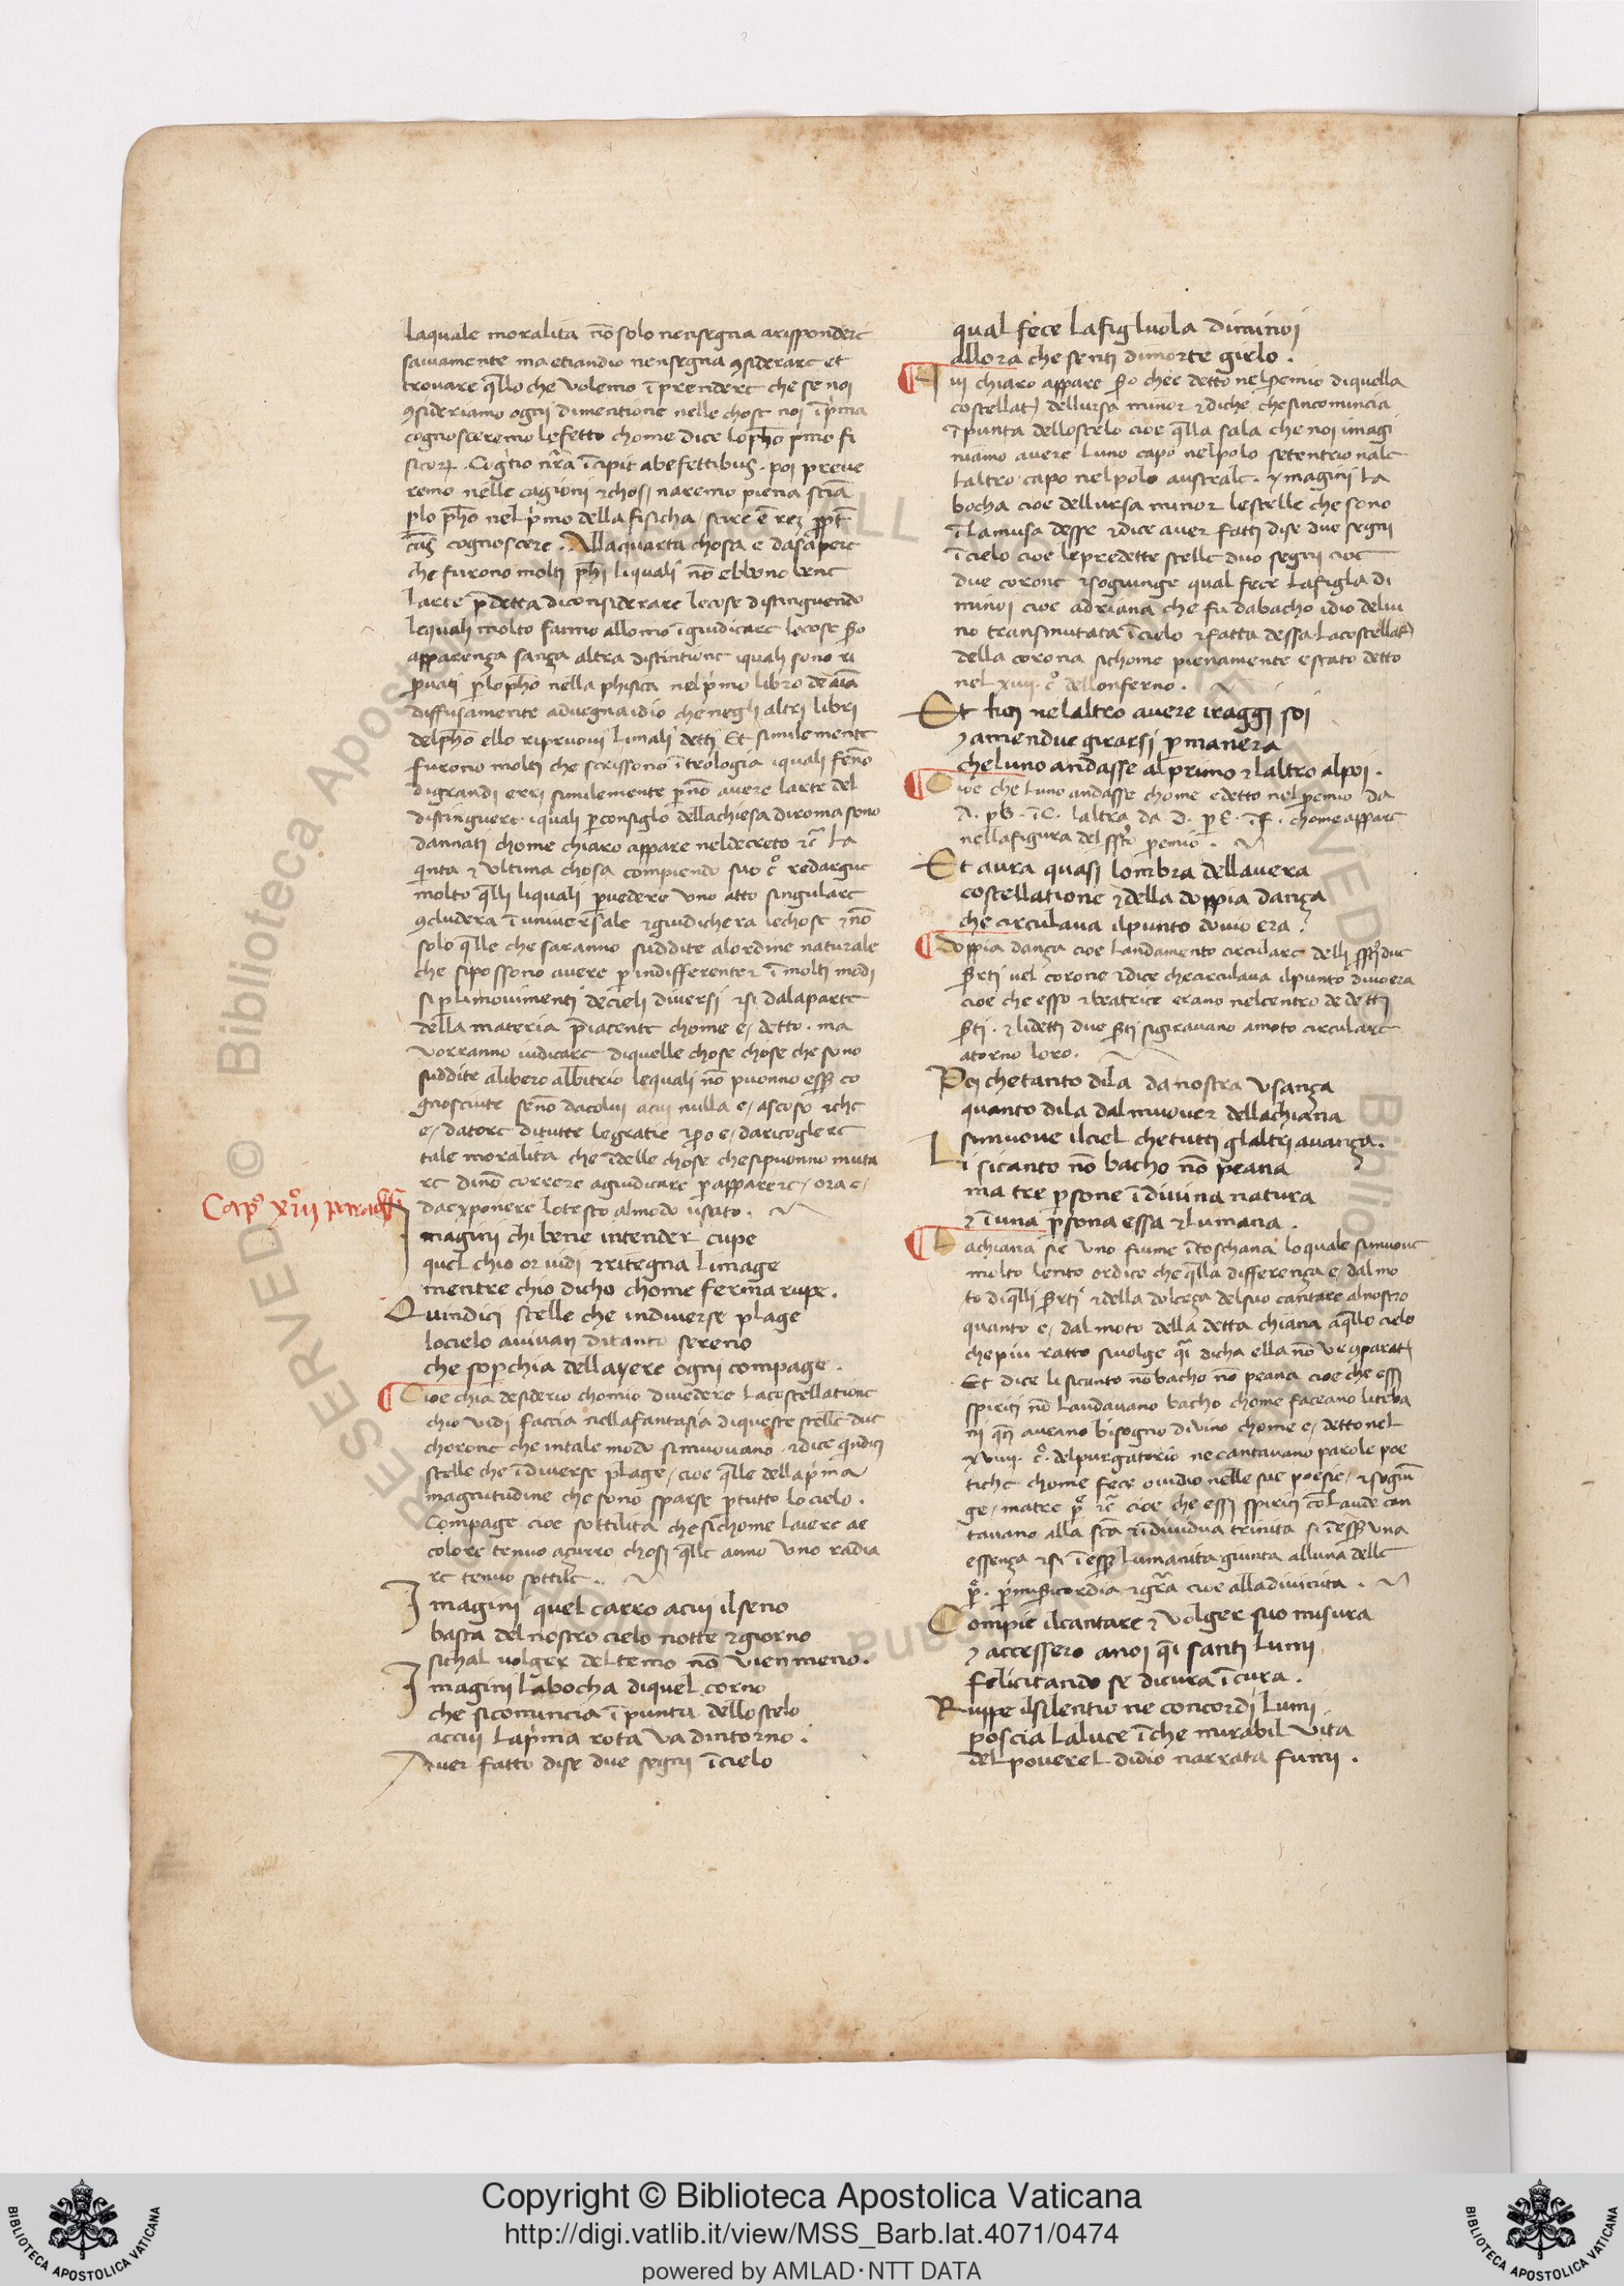 laquale moralita nõ solo nensegna arispondere
saviamente ma etiandio nensegna ꝯsiderare et
trovare q̃llo che volemo ĩprendere che se noi
ꝯsideriamo ogni dimentione nelle chose noi ĩprima
cognosceremo lefetto chome dice lo pħo p̃mo fi
sicoꝝ. Cog̃tio nr̃a ĩcipit ab effettibus. poi preve
remo nelle cagioni ⁊ chosi naremo piena sciã
plo pħo nel p̃mo della fisicha
cognoscere. Alla quarta chosa e da sapere
che furono molti pħi li quali nõ ebbono bene
larte p̃detta di considerare le cose distinguendo
lequali molto fanno allomo ĩgiudicare le cose
apparenza sanza altra distintione iquali sono ri
provati p lo pħo nella phisica nel p̃mo libro de aĩa
diffusamente advegna idio che negli altri libri
del pħo ello ripruovi limali detti Et similemente
furono molti che scrissono ĩ teologia iquali fẽno
di grandi erri similemente p nõ avere larte del
distinguere. iquali p consiglo della chiesa di roma sono
dannati chome chiaro appare nel decreto ⁊c̃ La
quinta ⁊ ultima chosa compiendo suo c̊ redargue
molto q̃lli liquali p vedere uno atto singulare
ꝯcludera ĩ universale ⁊ giudichera le chose ⁊ nõ
solo q̃lle che saranno suddite al ordine naturale
che si possono avere p indifferenter ĩ molti modi
si p li movimenti de cieli diversi ⁊ si dala parte
della materia p̃iacente chome e/ detto. ma
vorranno iudicare di quelle chose chose che sono
suddite alibero albitrio lequali nõ puonno ess̃ co
gnosciute se nõ da colui acui nulla e/ ascoso ⁊ che
e/ datore di tutte le gratie ⁊ po e/ da ricoglere
tale moralita che ĩ delle chose che si puonno muta
re di nõ correre agiudicare p apparere/ ora e/
da exponere lo testo al modo usato.
Cap̊ xiii̊ paradisi
Imagini chi bene intender cupe
quel chio or vidi ⁊ ritegna limage
mentre chio dicho chome ferma rupe.
Quindici stelle che indiverse plage
lo cielo avivan di tanto sereno
che soperchia dellayere ogni compage.
Cioe chi a desiderio chomio di vedere la costellatione
chio vidi faccia nella fantasia di queste stelle due
chorone che in tale modo si muovano ⁊ dice q̃ndici
stelle che ĩ diverse plage/ cioe q̃lle della p̃ma
magnitudine che sono sparse p tutto lo cielo.
Compage cioe sottilita che si chome laiere ae
colore tenuo azurro chosi q̃lle anno uno radia
re tenuo sottile.
Imagini quel carro acui il seno
basta del nostro cielo notte ⁊ giorno
sichal volger del temo nõ vien meno.
Imagini la bocha di quel corno
che si comincia ĩ punta dello stelo
accui la p̃ma rota va dintorno.
Aver fatto di se due segni ĩ cielo
qual fece la figluola di minoi
allora che senti di morte gielo.
Qui chiaro appare po chee detto nel p̃emio di quella
costellat̃ dellursa minor ⁊ diche che sincomincia
ĩ punta dello stelo cioe q̃lla sala che noi imagi
niamo avere luno capo nel polo setentrionale
laltro capo nel polo australe. ymagini la
bocha cioe dellursa minor le stelle che sono
ĩ la musa desse ⁊ dice aver fatti di se due segni
ĩ cielo cioe le predette stelle duo segni cioe
due corone ⁊ sogiunge qual fece la figla di
minoi cioe adriana che fu da bacho idio del vi
no transmutata ĩ cielo ⁊ fatta dessa la costellat̃
della corona sichome pienamente e stato detto
nel xiiii. c̊ dellonferno.
Et lun nel altro avere iraggi soi
⁊ amendue girarsi p manera
che luno andasse al primo ⁊ laltro al poi.
Cioe che luno andasse chome e detto nel p̃emio da
A. p B. ĩ C. laltra da D. p E. ĩ F. chome appare
nella figura del p̃emio.
Et avra quasi lombra della vera
costellatione ⁊ della doppia danza
che circulava il punto dovio era.
Doppia danza cioe landamento circulare delli due
⁊ dice che circulava il punto dovio era
cioe che esso ⁊ beatrice erano nel centro de detti
⁊ li detti due si giravano a moto circulare
atorno loro.
Poi che tanto di la da nostra usanza
quanto di la dal muover della chiana
si muove il ciel che tutti glaltri avanza.
Li si canto nõ bacho nõ peana
ma tre persone ĩ divina natura
⁊ ĩ una p̃sona essa ⁊ lumana.
La chiana sie uno fiume ĩ toschana lo quale si muove
molto lento or dico che q̃lla differenza e/ dal mo
to di q̃lli ⁊ della dolceza del suo cantare al nostro
quanto e/ dal moto della detta chiana a q̃llo cielo
che piu ratto si volge
Et dice li si canto nõ bacho nõ peana cioe che essi
spiriti nõ laudavano bacho chome faceano li teba
ni q̃n avrano bisogno di vino chome e/ detto nel
xviii. c̊. del purgatorio ne cantavano parole poe
tiche chome fece ovidio nelle sue poesie/ ⁊ sogiũ
ge/ ma tre ⁊c̃ cioe che essi spiriti cõ laude can
tavano alla sc̃a ⁊ ĩdividua trinita si ĩ ess̃ una
essenza ⁊ si ĩ ess̃ lumanita giunta alluna delle
p misericordia ⁊ gr̃a cioe alla divinita.
Compie il cantare ⁊ volger suo misura
⁊ accessero anoi q̃i santi lumi
felicitando se di cura ĩ cura.
Ruppe il silentio ne concordi lumi
poscia la luce ĩ che mirabil vita
del poverel didio narrata fumi.
Copyright © Biblioteca Apostolica Vaticana
http://digi.vatlib.it/view/MSS_Barb.lat.4071/0474
powered by AMLAD·NTT DATA
BIBLIOTECA APOSTOLICA VATICANA
BIBLIOTECA APOSTOLICA VATICANA